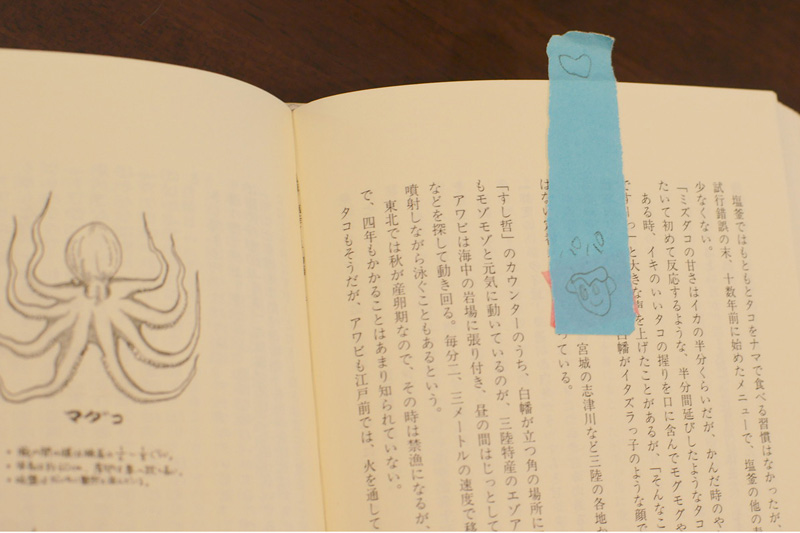 塩釜ではもともとタコをナマで食べる習慣はなかったが、
試行錯誤の末、十数年前に始めたメニューで、塩釜の他の
少なくない。
「ミズダコの甘さはイカの半分くらいだが、かんだ時のや
たいて初めて反応するような、半分間延びしたようなタコ
ある時、イキのいいタコの握りを口に含んでモグモグや
と大きな声を上げたことがあるが、「そんなこ
白幡がイタズラっ子のような顔で
宮城の志津川など三陸の各地か
っている。
「すし哲」のカウンターのうち、白幡が立つ角の場所に
もモゾモゾと元気に動いているのが、三陸特産のエゾア
アワビは海中の岩場に張り付き、昼の間はじっとして
などを探して動き回る。毎分二、三メートルの速度で移
噴射しながら泳ぐこともあるという。
東北では秋が産卵期なので、その時は禁漁になるが、
で、四年もかかることはあまり知られていない。
タコもそうだが、アワビも江戸前では、火を通して
マダコ